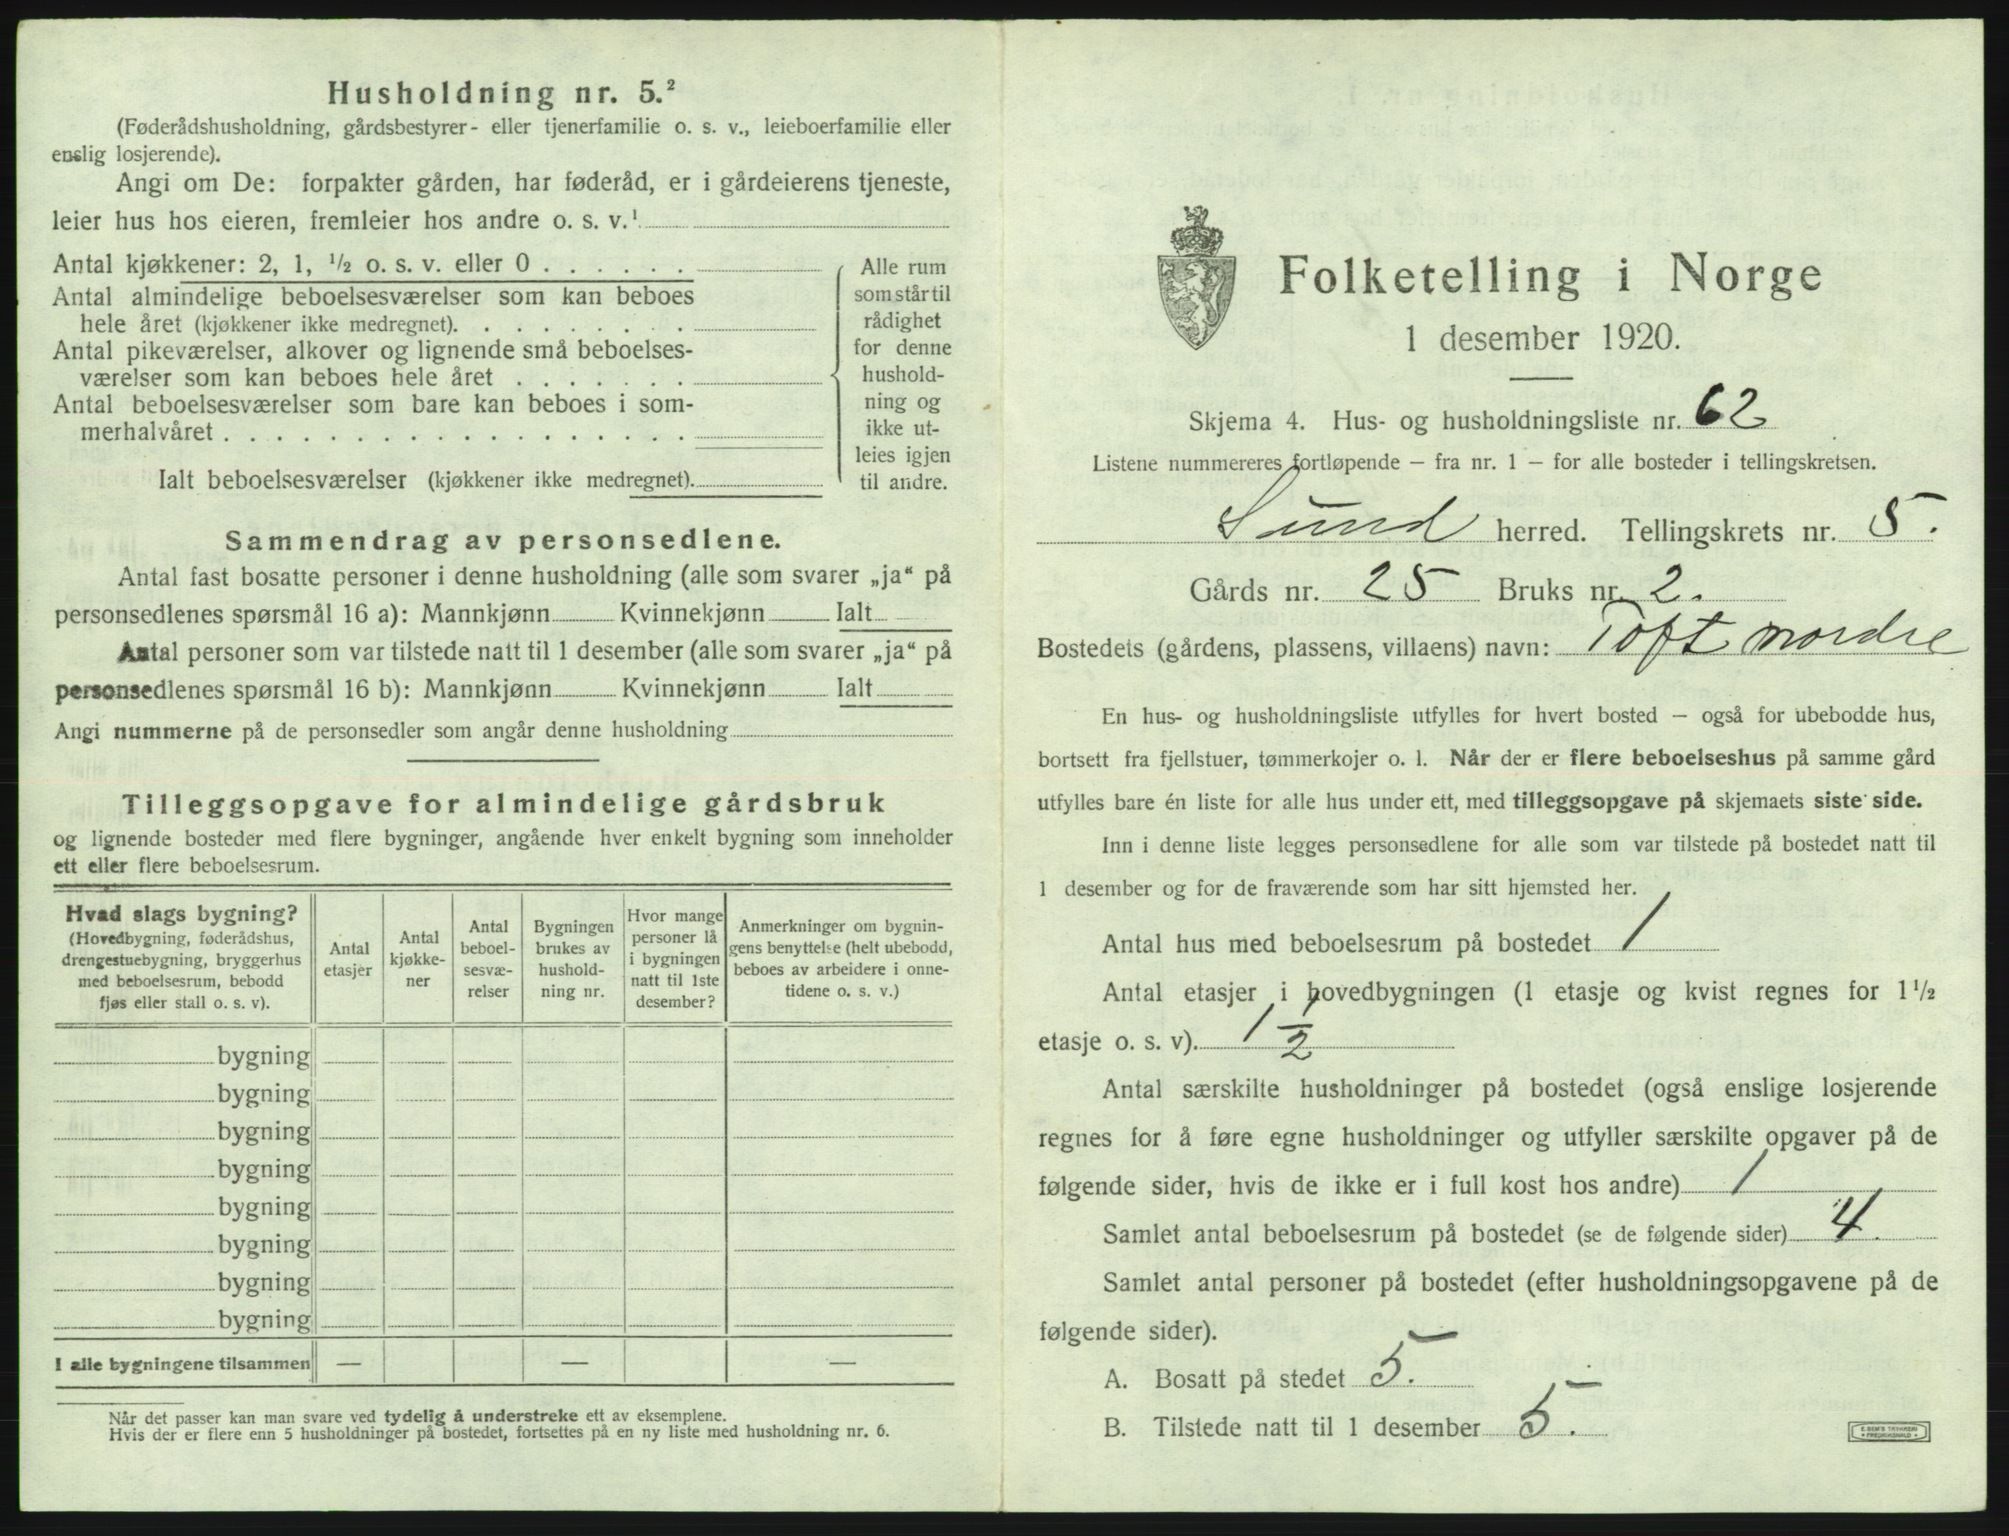 Husholdning nr. 5.²
(Føderådshusholdning, gårdsbestyrer- eller tjenerfamilie o. s. v., leieboerfamilie eller
enslig losjerende).
Angi om De: forpakter gården, har føderåd, er i gårdeierens tjeneste,
leier hus hos eieren, fremleier hos andre o. s. v.¹
Antal kjøkkener: 2, 1, ½ o. s. v. eller 0 . . . . . .
Antal almindelige beboelsesværelser som kan beboes
hele året (kjøkkener ikke medregnet). . . . . . . . .
Antal pikeværelser, alkover og lignende små beboelses-
værelser som kan beboes hele året . . . . . . .
Antal beboelsesværelser som bare kan beboes i som-
merhalvåret . . . . . . . . . . . . . . . . . .
Ialt beboelsesværelser (kjøkkener ikke medregnet).
Alle rum
som står til
rådighet
for denne
hushold-
ning og
ikke ut-
leies igjen
til andre.
Sammendrag av personsedlene.
Antal fast bosatte personer i denne husholdning (alle som svarer „ja“ på
personsedlenes spørsmål 16 a): Mannkjønn Kvinnekjønn Ialt
Antal personer som var tilstede natt til 1 desember (alle som svarer „ja“ på
personsedlenes spørsmål 16 b): Mannkjønn Kvinnekjønn Ialt
Angi nummerne på de personsedler som angår denne husholdning
Tilleggsopgave for almindelige gårdsbruk
og lignende bosteder med flere bygninger, angående hver enkelt bygning som inneholder
ett eller flere beboelsesrum.
Hvad slags bygning?
(Hovedbygning, føderådshus,
drengestuebygning, bryggerhus
med beboelsesrum, bebodd
fjøs eller stall o. s. v).
Antal
etasjer
Antal
kjøkke-
ner
Antal
beboel-
sesvæ-
relser
Bygningen
brukes av
hushold-
ning nr.
Hvor mange
personer lå
i bygningen
natt til 1ste
desember?
Anmerkninger om bygnin-
gens benyttelse (helt ubebodd,
beboes av arbeidere i onne-
tidene o. s. v.)
bygning
bygning
bygning
bygning
bygning
bygning
bygning
bygning
I alle bygningene tilsammen — — —
Når det passer kan man svare ved tydelig å understreke ett av eksemplene.
Hvis der er flere enn 5 husholdninger på bostedet, fortsettes på en ny liste med husholdning nr. 6.
Folketelling i Norge
1 desember 1920.
Skjema 4. Hus- og husholdningsliste nr. 62
Listene nummereres fortløpende – fra nr. 1 – for alle bosteder i tellingskretsen.
Sund herred. Tellingskrets nr. 5.
Gårds nr. 25 Bruks nr. 2.
Bostedets (gårdens, plassens, villaens) navn: Toft nordre
En hus- og husholdningsliste utfylles for hvert bosted – også for ubebodde hus,
bortsett fra fjellstuer, tømmerkojer o. l. Når der er flere beboelseshus på samme gård
utfylles bare én liste for alle hus under ett, med tilleggsopgave på skjemaets siste side.
Inn i denne liste legges personsedlene for alle som var tilstede på bostedet natt til
1 desember og for de fraværende som har sitt hjemsted her.
Antal hus med beboelsesrum på bostedet 1
Antal etasjer i hovedbygningen (1 etasje og kvist regnes for 1½
etasje o. s. v). 1½
Antal særskilte husholdninger på bostedet (også enslige losjerende
regnes for å føre egne husholdninger og utfyller særskilte opgaver på de
følgende sider, hvis de ikke er i full kost hos andre) 1
Samlet antal beboelsesrum på bostedet (se de følgende sider) 4.
Samlet antal personer på bostedet (efter husholdningsopgavene på de
følgende sider).
A. Bosatt på stedet 5.
B. Tilstede natt til 1 desember 5.